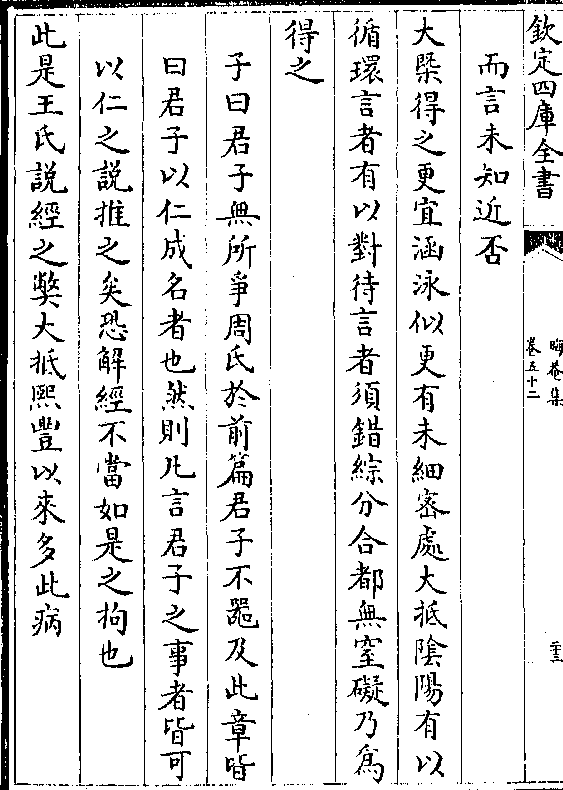 欽定四庫全書
晦菴集
卷五十二
二十三
而言未知近否
大槩得之更宜涵泳似更有未細宻處大抵隂陽有以
循環言者有以對待言者須錯綜分合都無窒礙乃為
得之
子曰君子無所爭周氏於前篇君子不器及此章皆
曰君子以仁成名者也然則凡言君子之事者皆可
以仁之說推之矣恐解經不當如是之拘也
此是王氏說經之弊大抵熙豐以來多此病